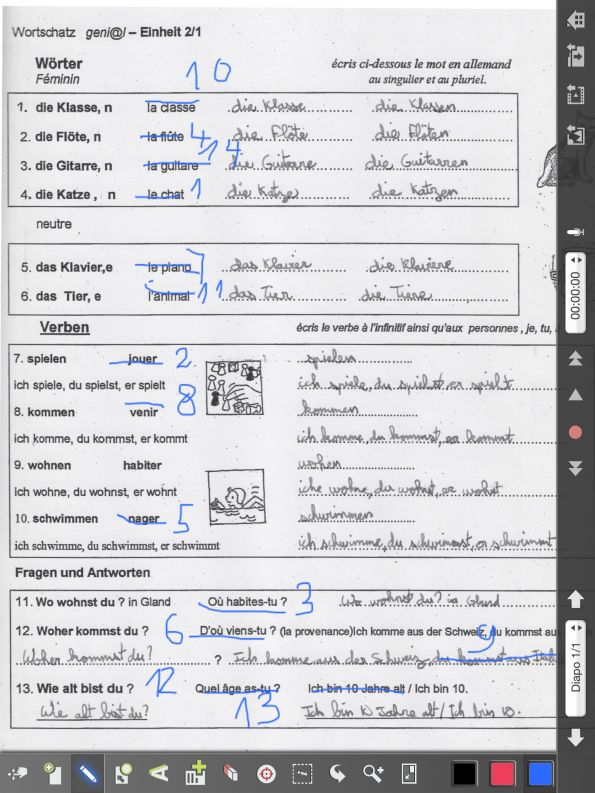 Wortschatz geni@l – Einheit 2/1
Wörter
Féminin
10
écris ci-dessous le mot en allemand
au singulier et au pluriel.
1. die Klasse, n la classe die Klasse die Klassen
2. die Flöte, n la flûte 4 die Flöte die Flöten
3. die Gitarre, n la guitare 14 die Guitarre die Guitarren
4. die Katze , n le chat 1 die Katze die Katzen
neutre
5. das Klavier,e le piano 7 das Klavier die Klaviere
6. das Tier, e l'animal 11 das Tier die Tiere
Verben
écris le verbe à l'infinitif ainsi qu'aux personnes , je, tu,
7. spielen jouer 2 spielen
ich spiele, du spielst, er spielt ich spiele, du spielst, er spielt
8. kommen venir 8 kommen
ich komme, du kommst, er kommt ich komme, du kommst, er kommt
9. wohnen habiter wohen
ich wohne, du wohnst, er wohnt iche wohne, du wohst, er wohst
10. schwimmen nager 5 schwimmen
ich schwimme, du schwimmst, er schwimmt ich schwimme, du schwimmst, er schwimmt
Fragen und Antworten
11. Wo wohnst du ? in Gland Où habites-tu ? 3 Wo wohnst du? in Gland
12. Woher kommst du ? 6 D'où viens-tu ? (la provenance)Ich komme aus der Schweiz, du kommst aus
9
Woher kommst du? ? Ich komme aus der Schweiz, du kommst aus Itali
13. Wie alt bist du ? 12 Quel âge as-tu ? 13 Ich bin 10 Jahre alt / Ich bin 10.
Wie alt bist du? Ich bin 10 Jahre alt / Ich bin 10.
00:00:00
Diapo 1/1